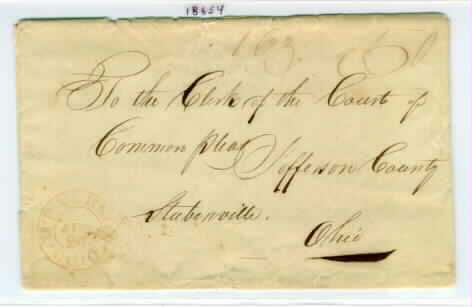 18654
163
To the Clerk of the Court of
Common pleas
Jefferson County
Steubenville.
Ohio